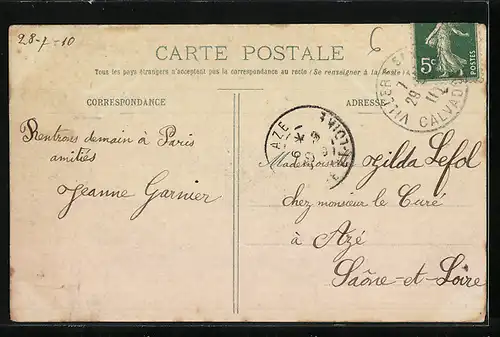 28-7-10
6
CARTE POSTALE
Tous les pays étrangers n'acceptent pas la correspondance au recto (Se renseigner à la Poste)
5c
POSTES
CALVADOS
CORRESPONDANCE
ADRESSE
AZE
Rentrons demain à Paris
amitiés
Jeanne Garnier
Mademoiselle Gilda Lefol
chez monsieur le Curé
à Azé
Saône-et-Loire